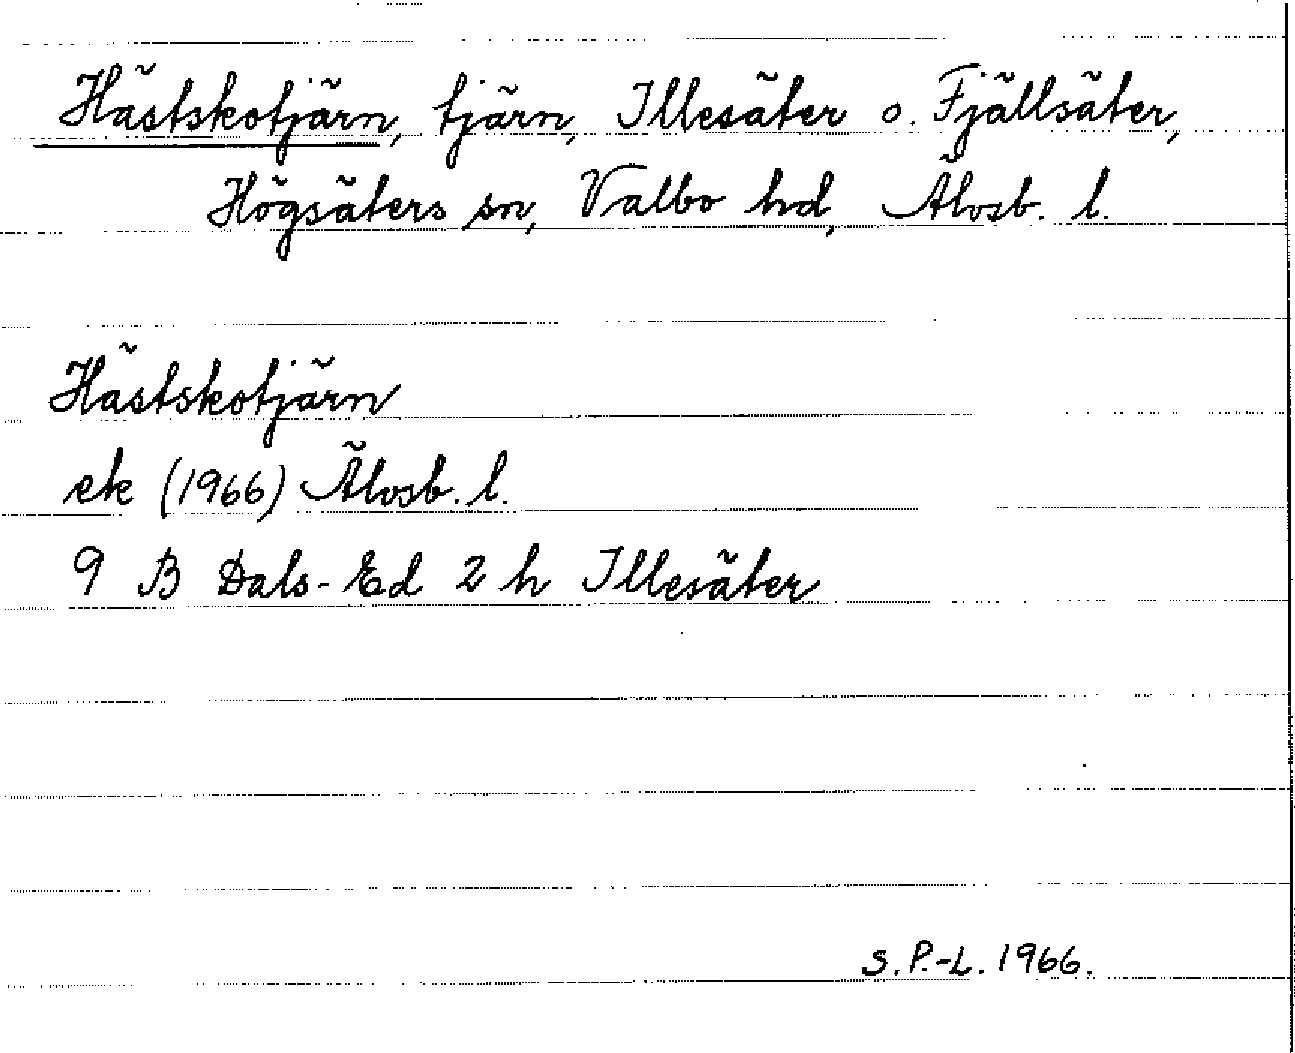 Hästskotjärn, tjärn, Illesäter o. Fjällsäter,
Högsäters sn, Valbo hd, Älvsb. l.
Hästskotjärn
ek (1966) Älvsb. l.
9 B Dals-Ed 2 h Illesäter
S. P.-L. 1966.